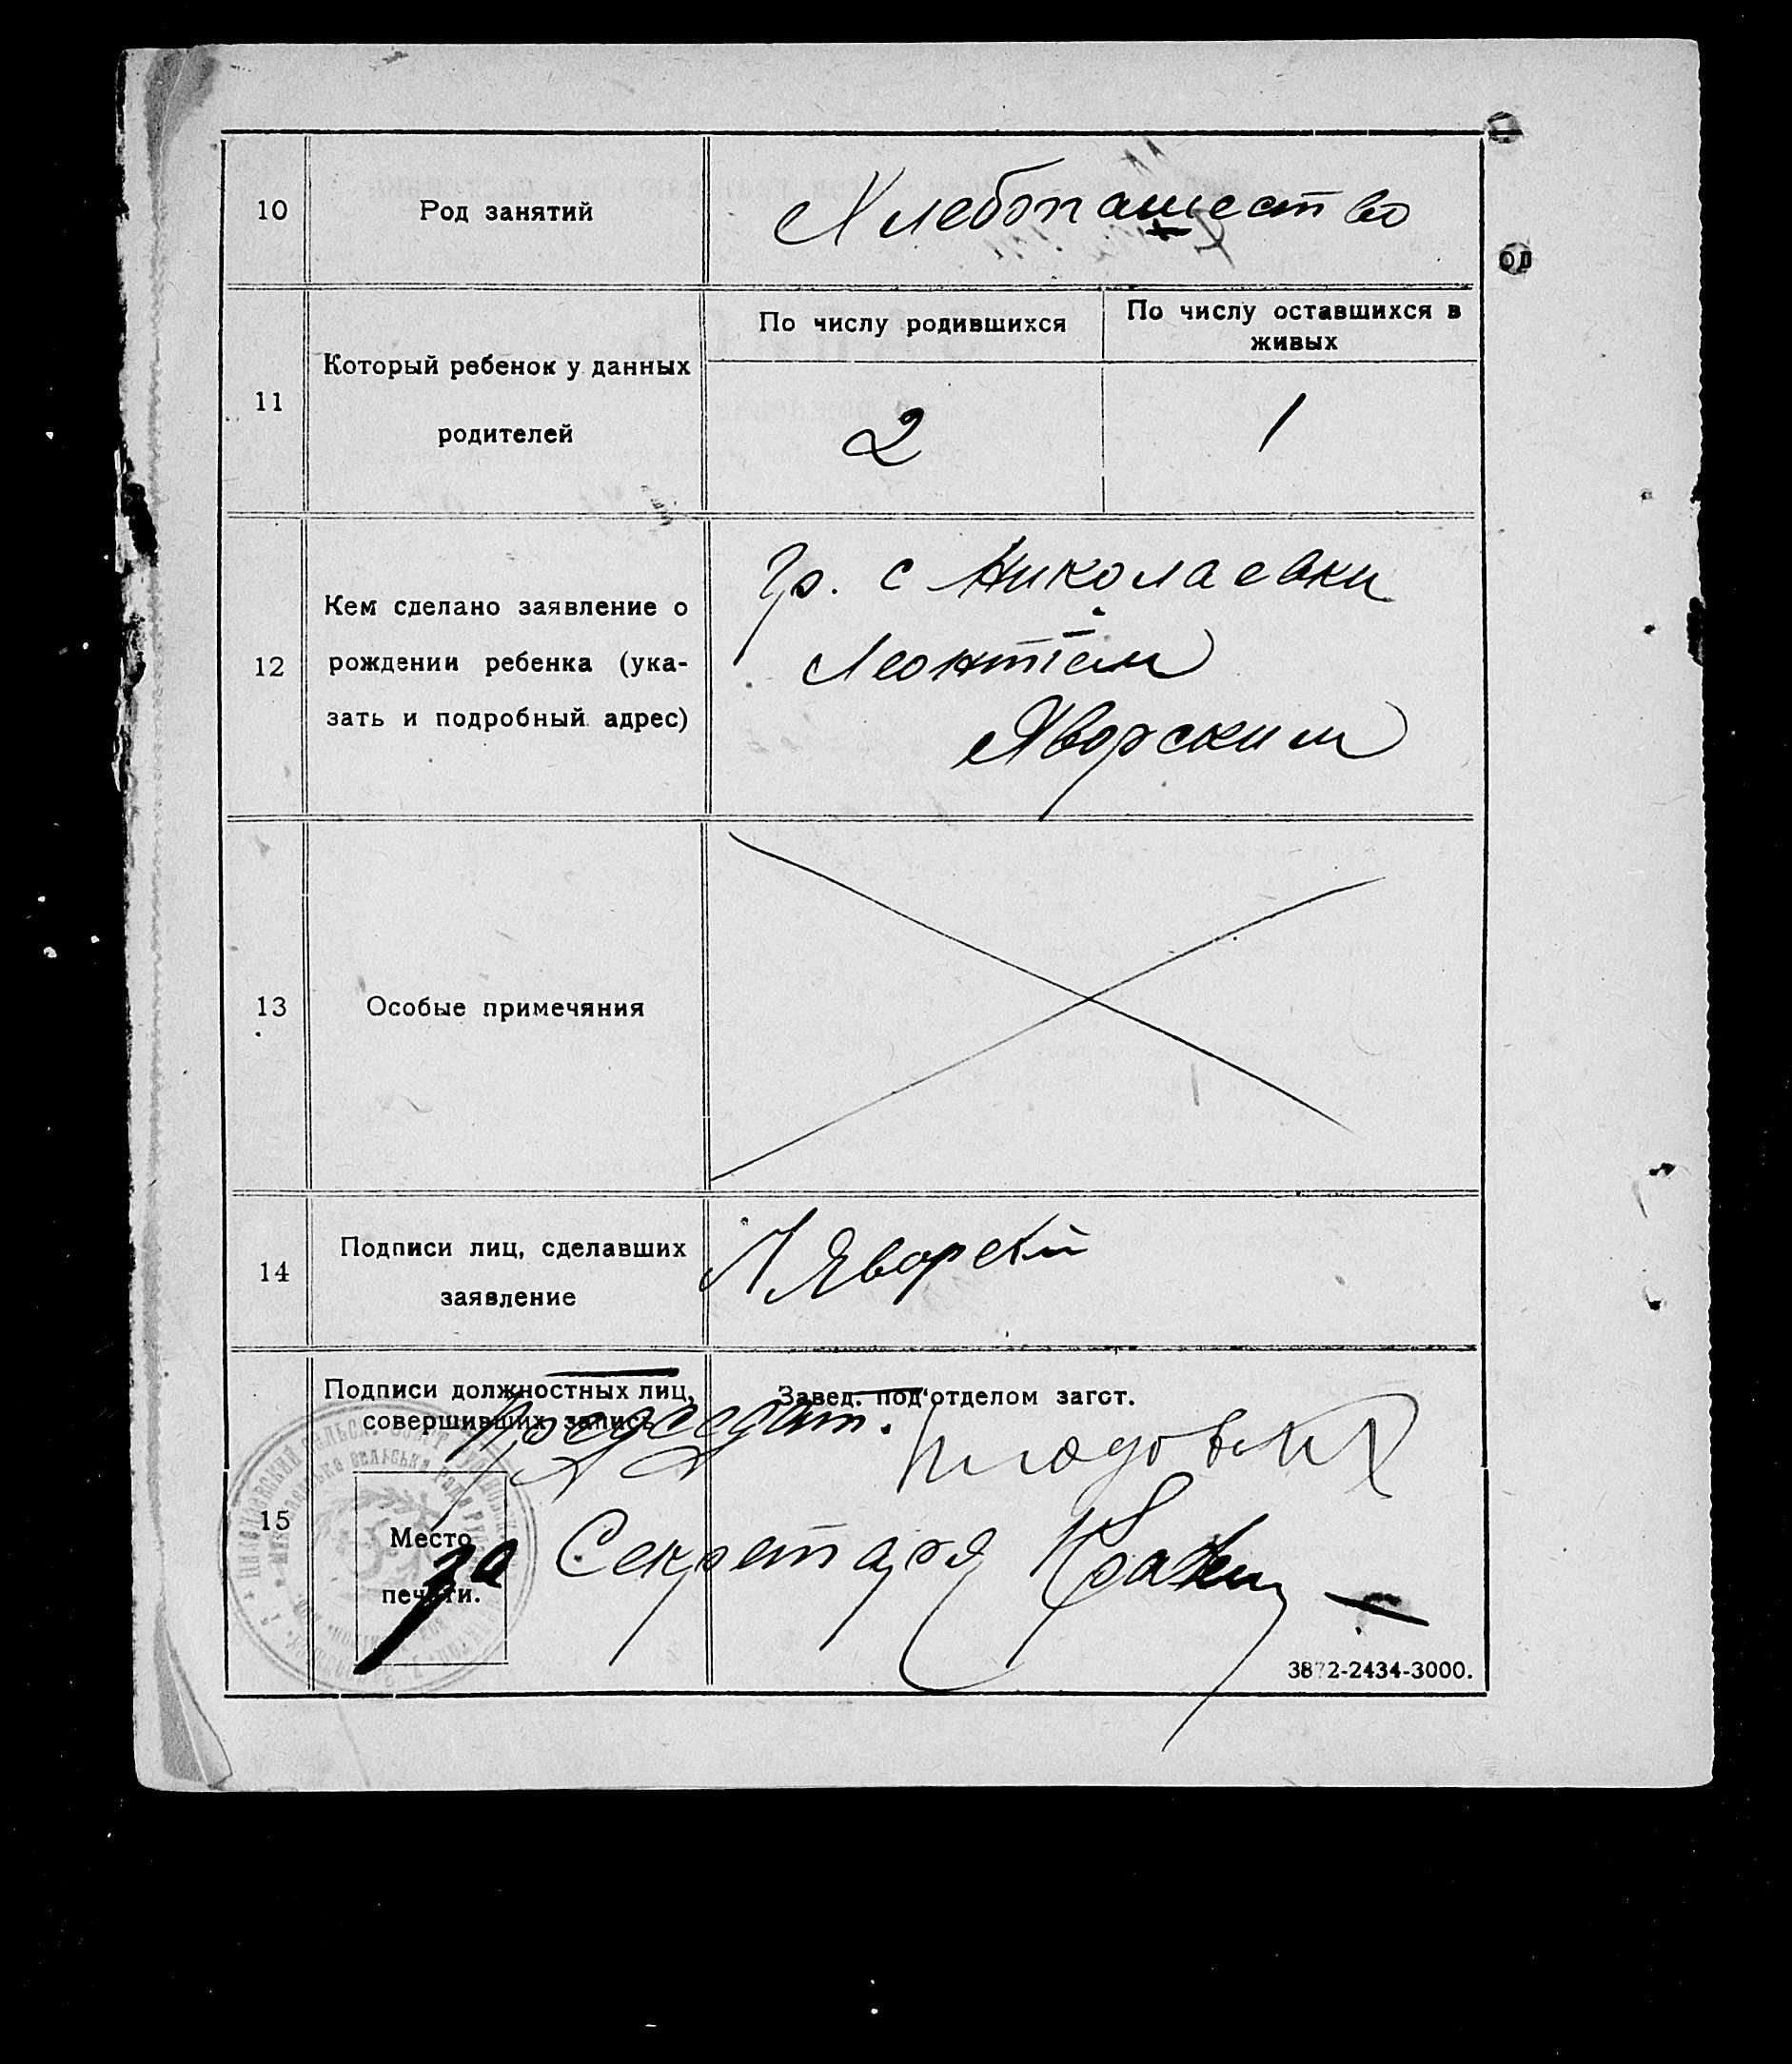 10
Род занятий
Хлебопашество
од
11
Который ребенок у данных
родителей
По числу родившихся
По числу оставшихся в
живых
2
1
12
Кем сделано заявление о
рождении ребенка (ука-
зать и подробный адрес)
Гр. с Николаевки
Леонтiем
Яворским
13
Особые примечяния
14
Подписи лиц, сделавших
заявление
Л Яворский
15
Подписи должностных лиц,
совершивших запись
Завед. под'отделом загст.
Председат.
Место
печати.
За Секретаря
3872-2434-3000.